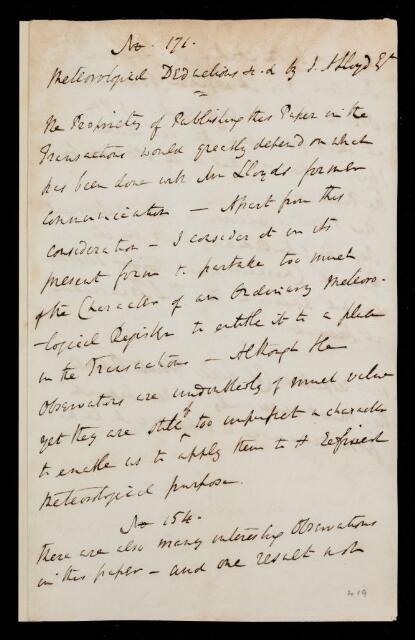 No. 171.
Meteorological Deductions &c. &c by J. A Lloyd Esq
The Propriety of Publishing this Paper in the
Transactions would greatly depend on what
has been done with Mr Lloyds former
Communication — Apart from this
consideration — I consider it in its
present form to partake too much
of the Character of an Ordinary Meteoro-
-logical Register to entitle it to a place
in the Transactions — Although the
Observations are undoubtedly of much value
yet they are still of too imperfect a character
to enable us to apply them to refined
Meteorological purpose.
No 154.
There are also many interesting Observations
in this paper — and one result not
419